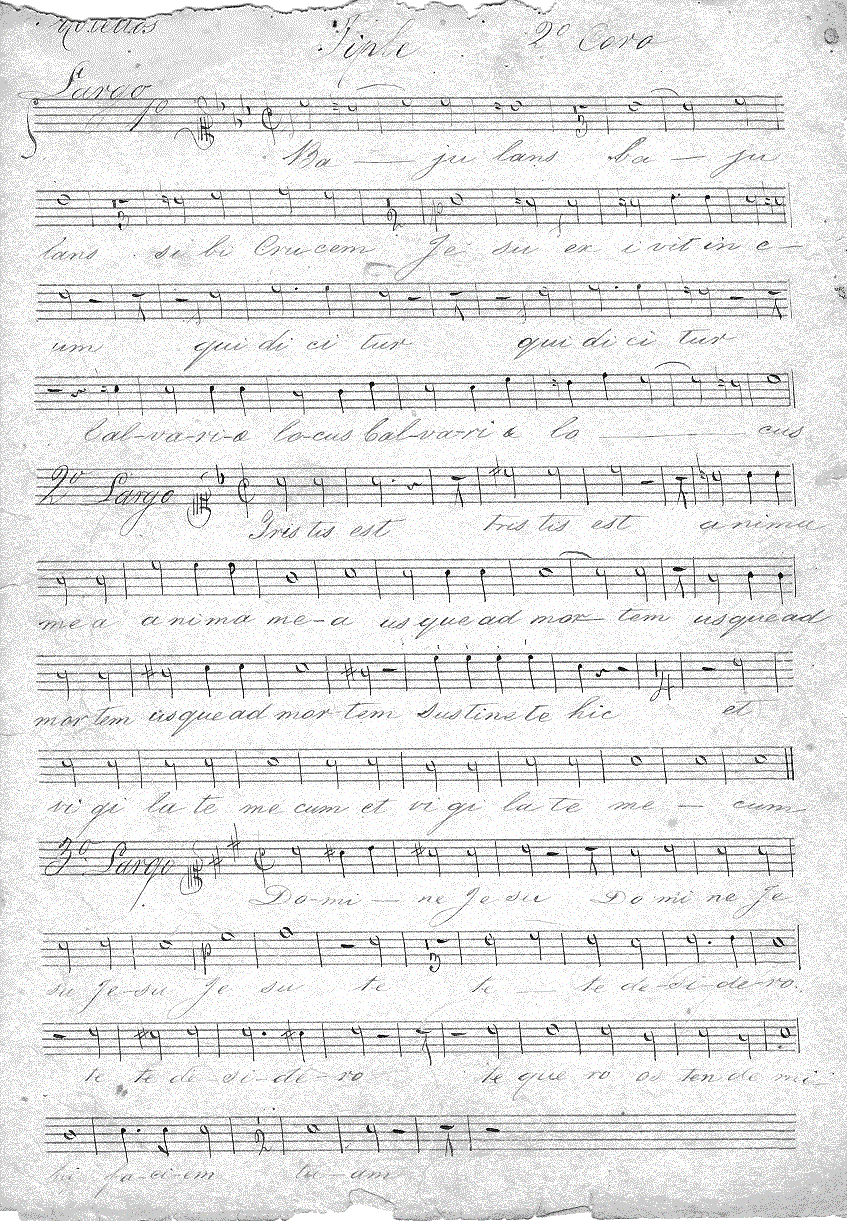 Motettos
Tiple 2º Coro
Largo
Ba — ju lans ba — ju
lans si bi Crucem Je su ex i vit in e-
um qui di ci tur qui di ci tur
Cal-va-ri-e lo-cus Cal-va-ri e lo — cus
2º Largo
Tris tis est tris tis est a nima
me a anima me-a us que ad mor-tem usque ad
mor tem usque ad mor-tem sustinete hic et
vi gi la te me cum et vi gi la te me — cum
3º Largo
Do-mi — ne Je su Do mi ne Je
su Je-su Je su te te — te de-si-de-ro.
te te de-si-de-ro te que ro os ten de mi-
hi fa-ci-em tu-am